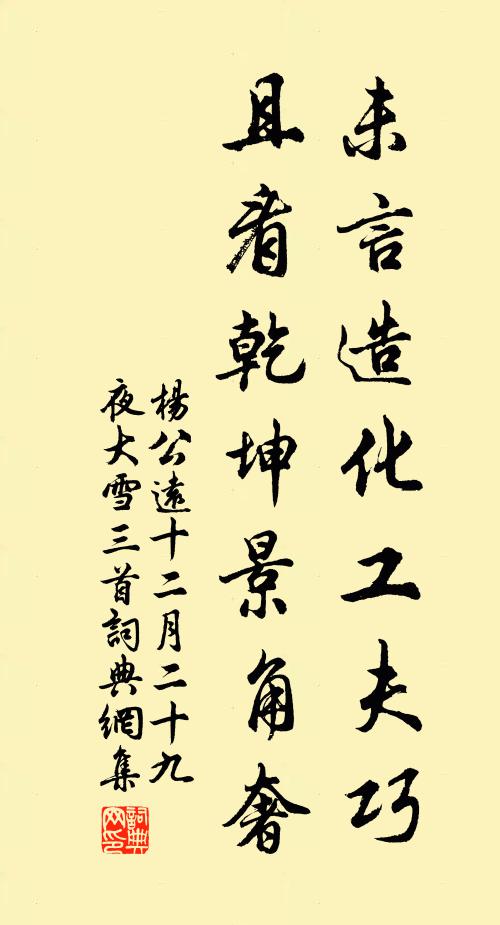 未言造化工夫巧
且看乾坤景角奢
楊公遠十二月二十九
夜大雪三首詞典網集
詞典
网印